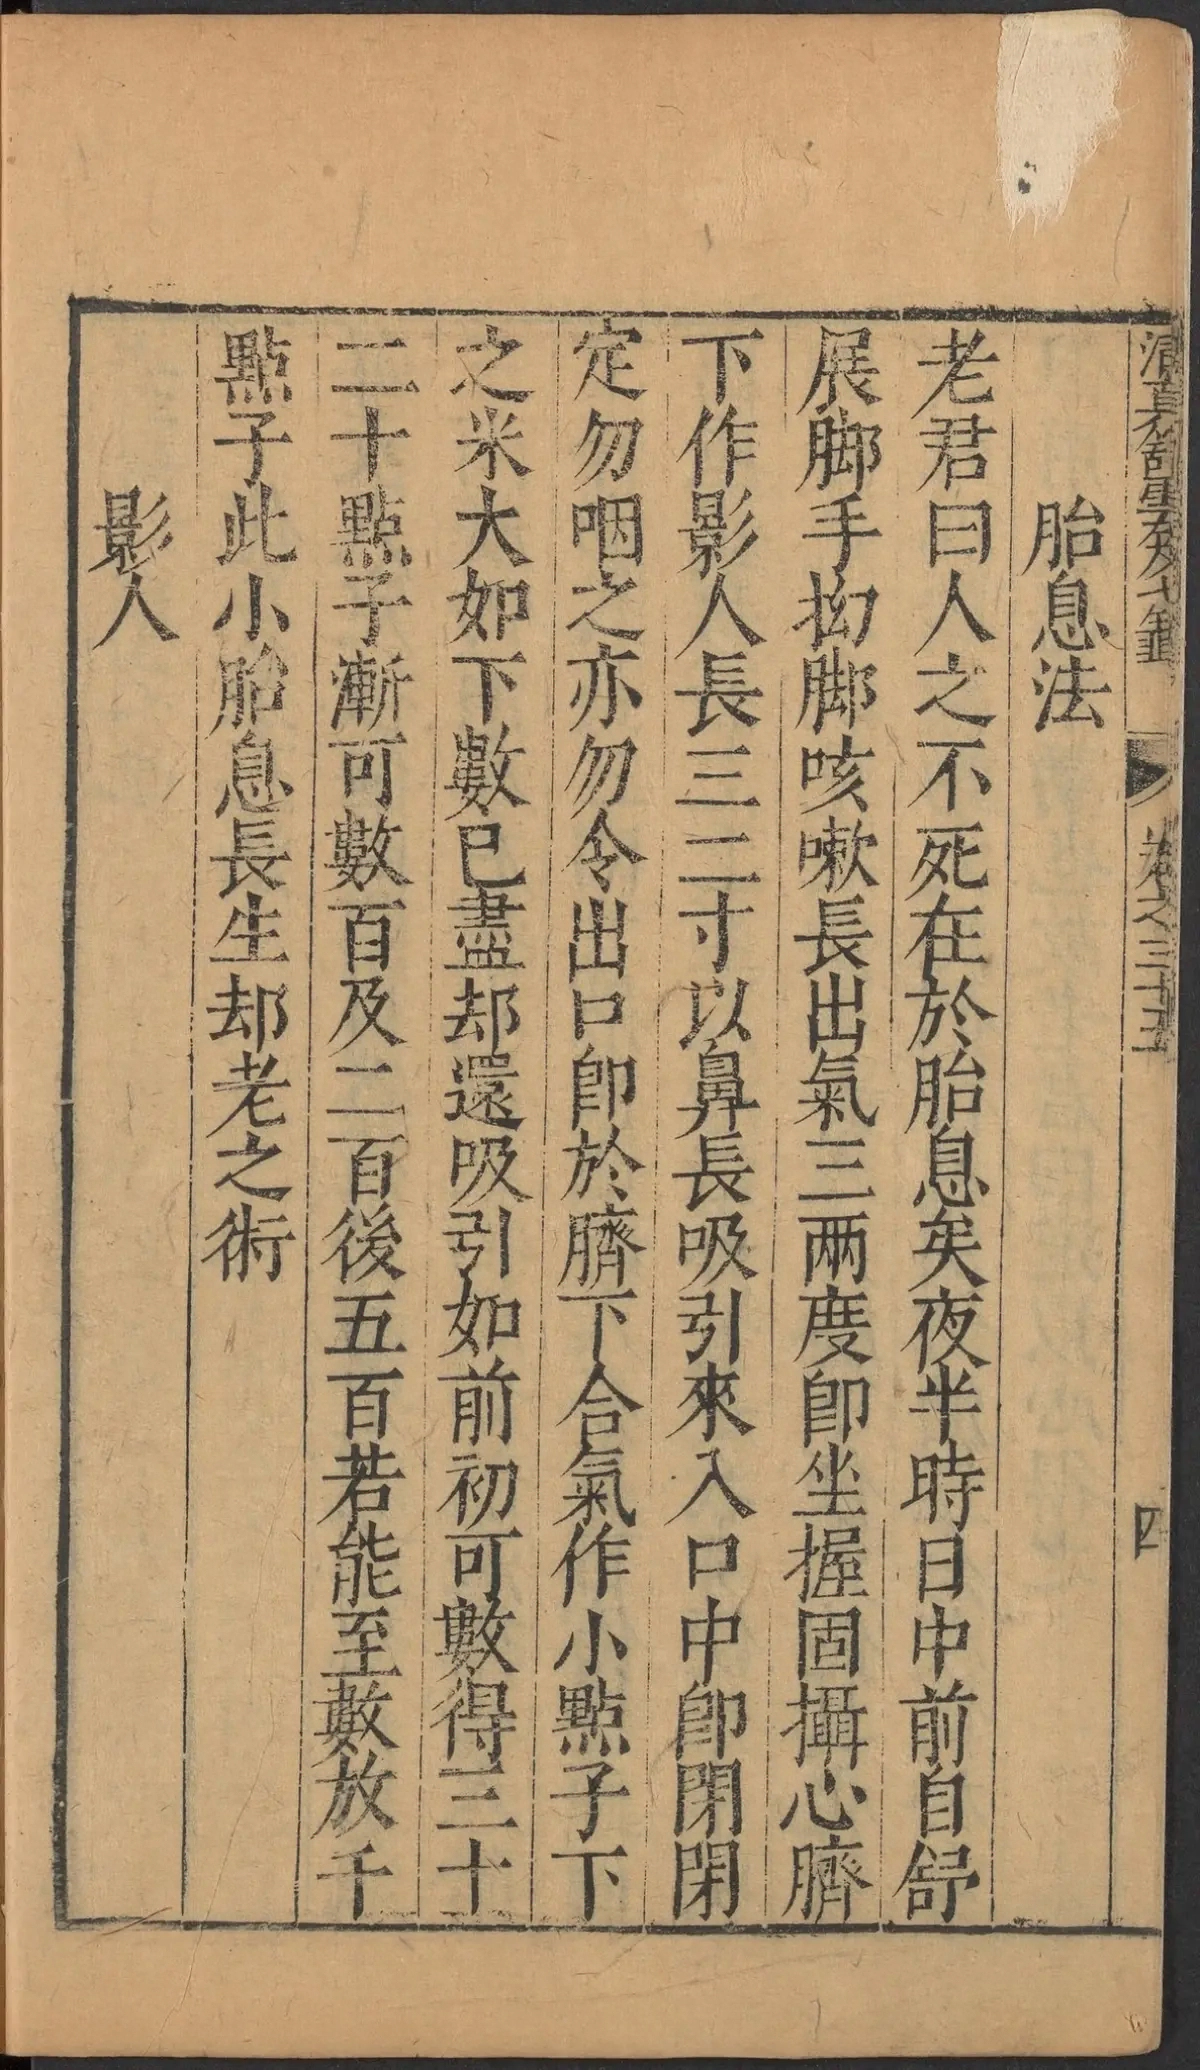 清真館雲笈七籤 卷之三十五 四
胎息法
老君曰人之不死在於胎息矣夜半時日中前自舒
展脚手拗脚咳嗽長出氣三兩度即坐握固攝心臍
下作影人長三二寸以鼻長吸引來入口中即閉閉
定勿咽之亦勿令出口即於臍下合氣作小點子下
之米大如下數已盡却還吸引如前初可數得三十
二十點子漸可數百及二百後五百若能至數放千
點子此小胎息長生却老之術
影人